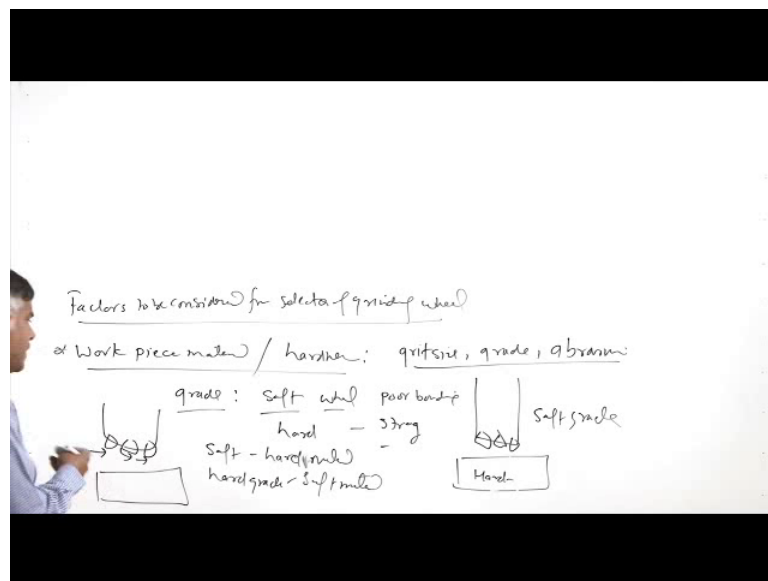 Factors to be considered for selection of grinding wheel
Work piece material / hardness : gritsize, grade, abrasive
grade : soft wheel poor bonding
hard - strong
soft - hard material
hard grade - soft material
soft grade
Hard